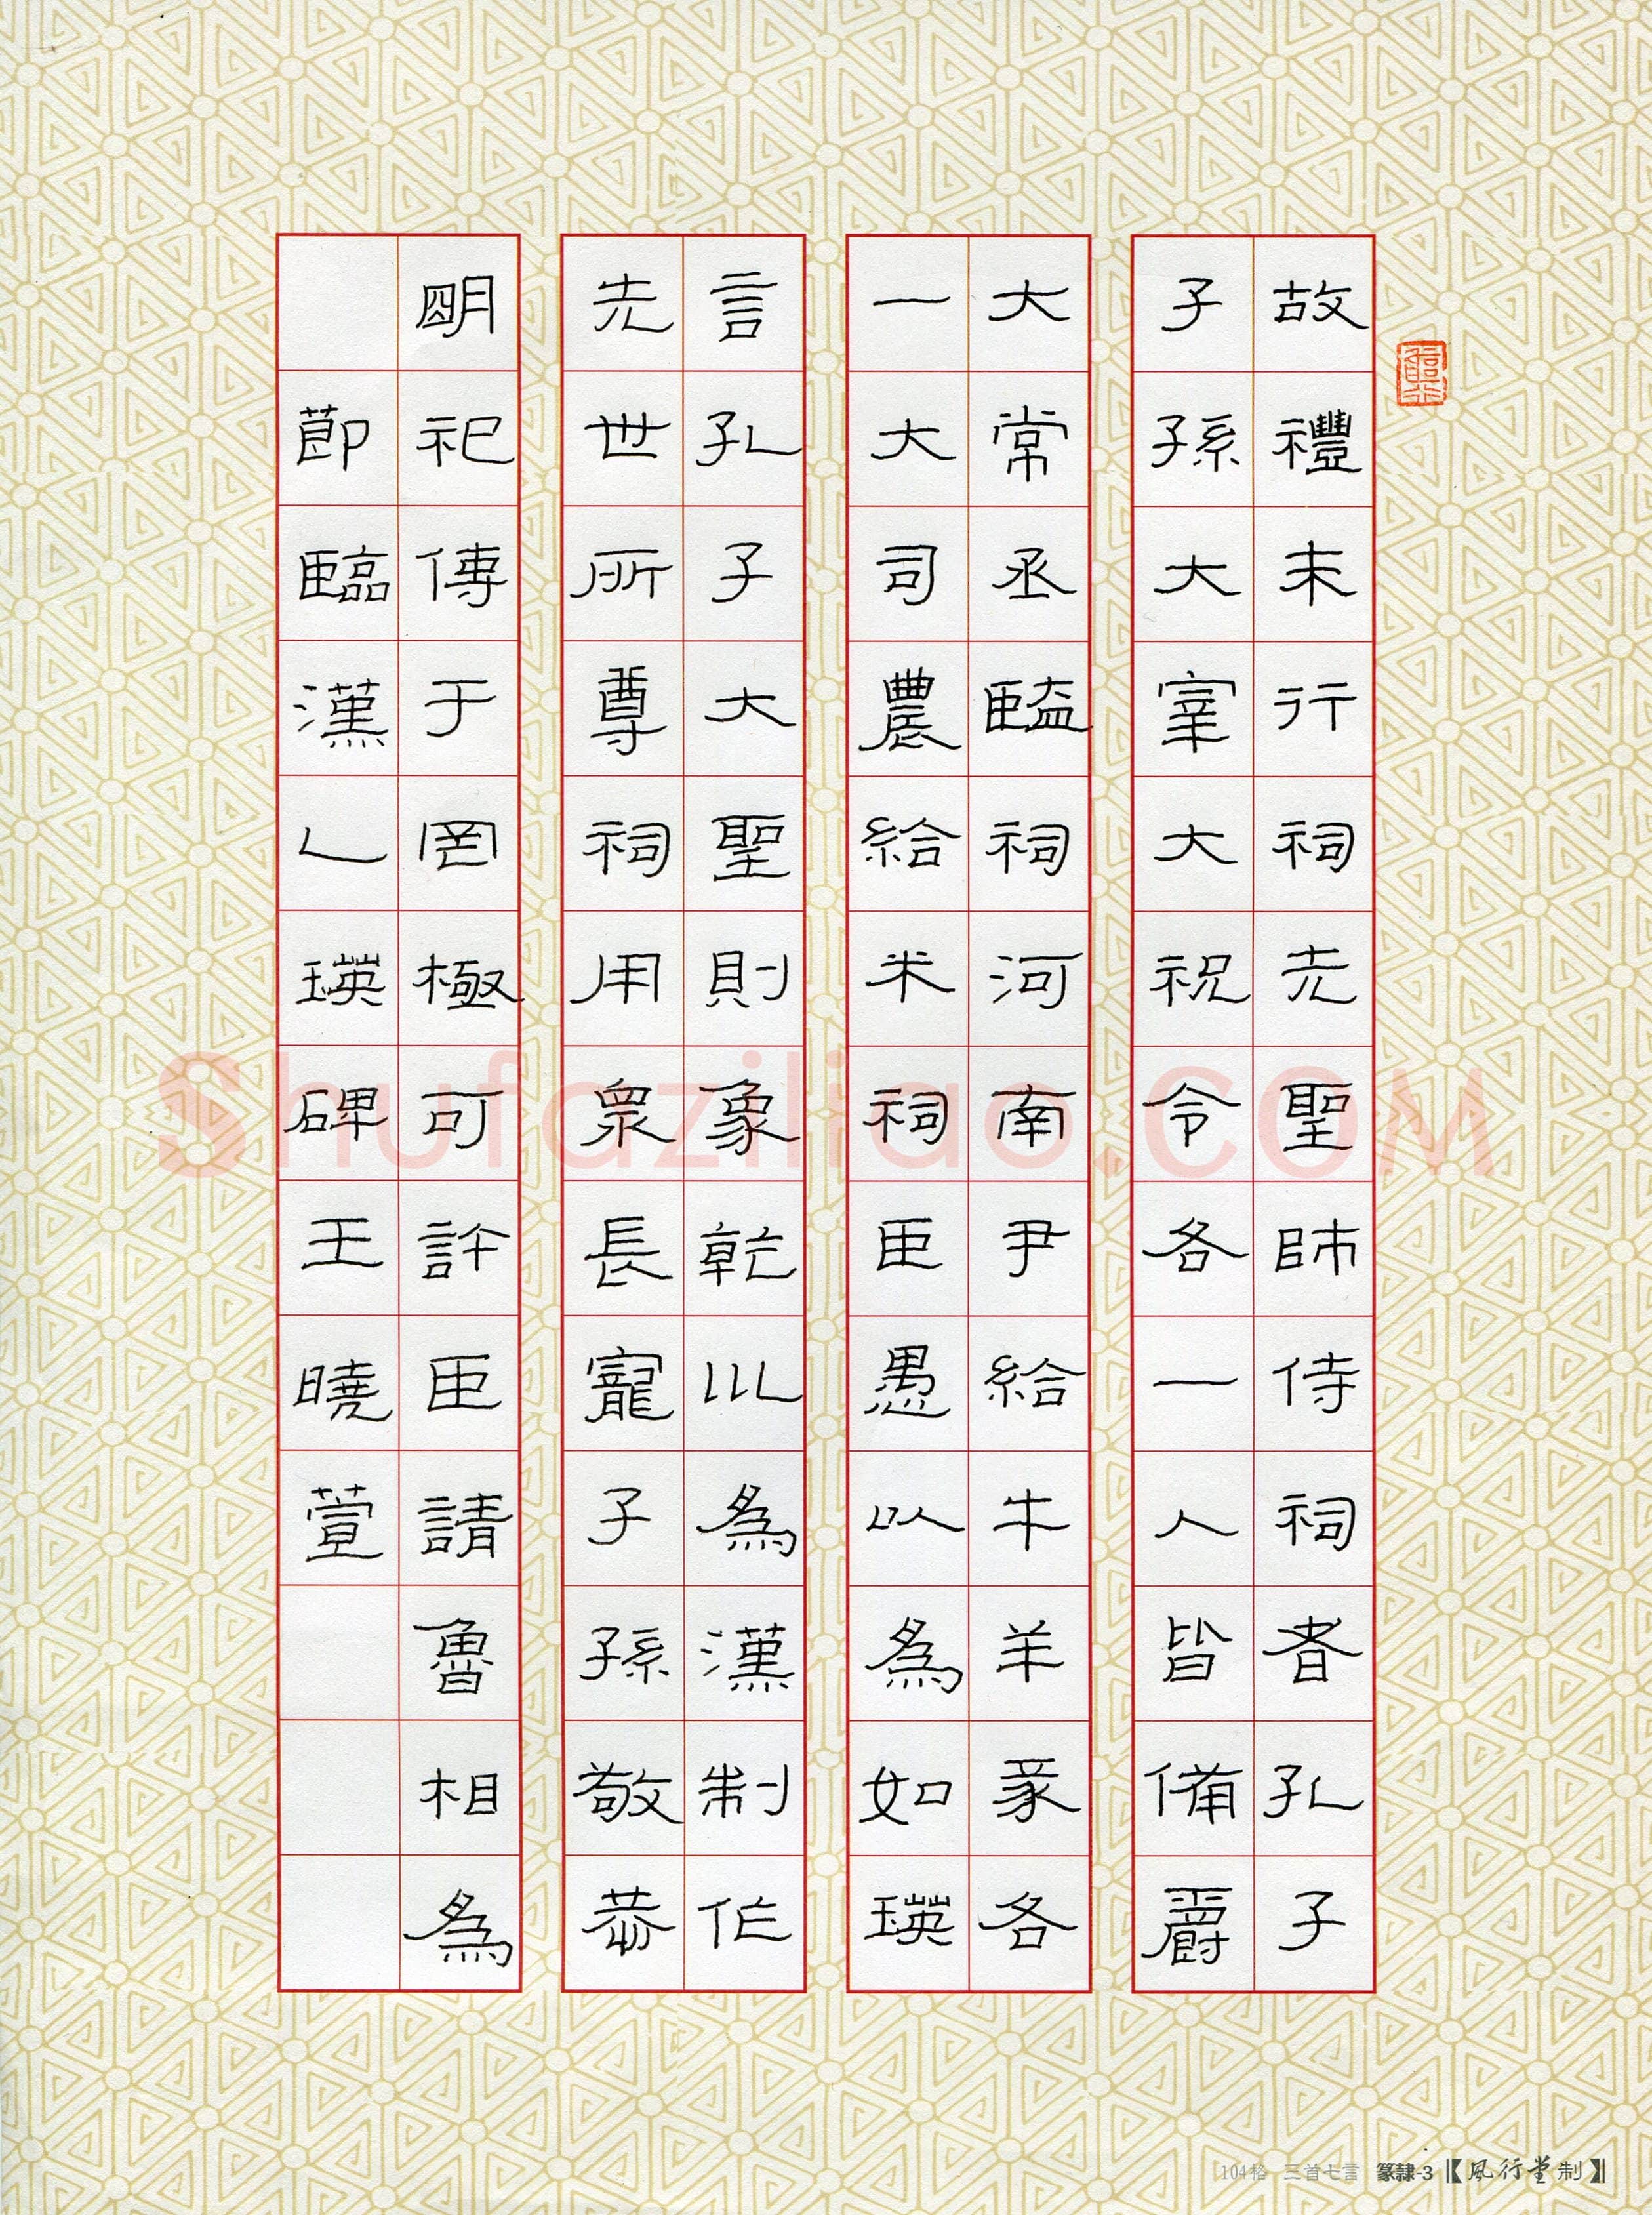 故禮未行祠先聖師侍祠者孔子
子孫大宰大祝令各一人皆備爵
大常丞監祠河南尹給牛羊豕各
一大司農給米祠臣愚以為如瑛
言孔子大聖則象乾川為漢制作
先世所尊祠用衆長寵子孫敬恭
明祀傳于罔極可許臣請魯相為
節臨漢乚瑛碑王曉萱
Shufaziliao.COM
104格 三首七言 篆隸-3【風行堂制】